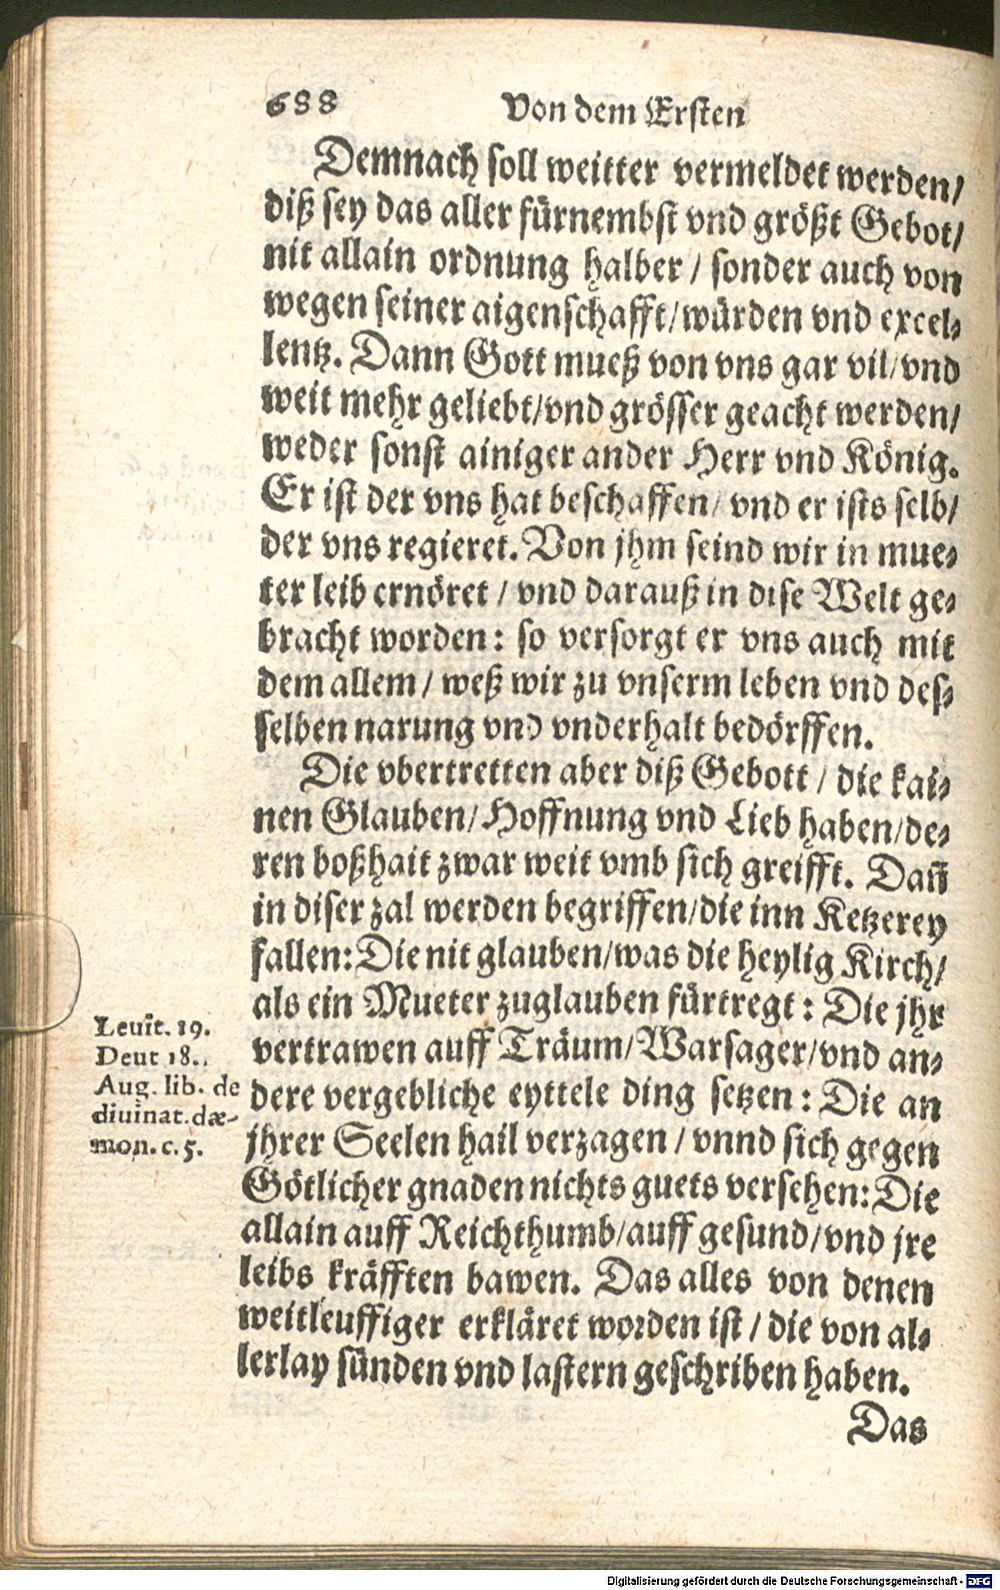 688 Von dem Ersten
Demnach soll weitter vermeldet werden/
diß sey das aller fürnembst vnd größt Gebot/
nit allain ordnung halber / sonder auch von
wegen seiner aigenschafft/würden vnd excel-
lentz. Dann Gott mueß von vns gar vil/vnd
weit mehr geliebt/vnd grösser geacht werden/
weder sonst ainiger ander Herr vnd König.
Er ist der vns hat beschaffen/ vnd er ists selb/
der vns regieret. Von jhm seind wir in mue-
ter leib ernöret / vnd darauß in dise Welt ge-
bracht worden: so versorgt er vns auch mit
dem allem / weß wir zu vnserm leben vnd des-
selben narung vnd vnderhalt bedörffen.
Die vbertretten aber diß Gebott / die kai-
nen Glauben/ Hoffnung vnd Lieb haben/de-
ren boßhait zwar weit vmb sich greifft. Dañ
in diser zal werden begriffen/die inn Ketzerey
fallen: Die nit glauben/was die heylig Kirch/
als ein Mueter zuglauben fürtregt: Die jhr
vertrawen auff Träum/Warsager/vnd an-
dere vergebliche eyttele ding setzen: Die an
jhrer Seelen hail verzagen / vnnd sich gegen
Götlicher gnaden nichts guets versehen: Die
allain auff Reichthumb/auff gesund/vnd jre
leibs kräfften bawen. Das alles von denen
weitleuffiger erkläret worden ist / die von al-
lerlay sünden vnd lastern geschriben haben.
Das
Leuit. 19.
Deut 18..
Aug. lib. de
diuinat. dæ-
mon. c. 5.
Digitalisierung gefördert durch die Deutsche Forschungsgemeinschaft - DFG